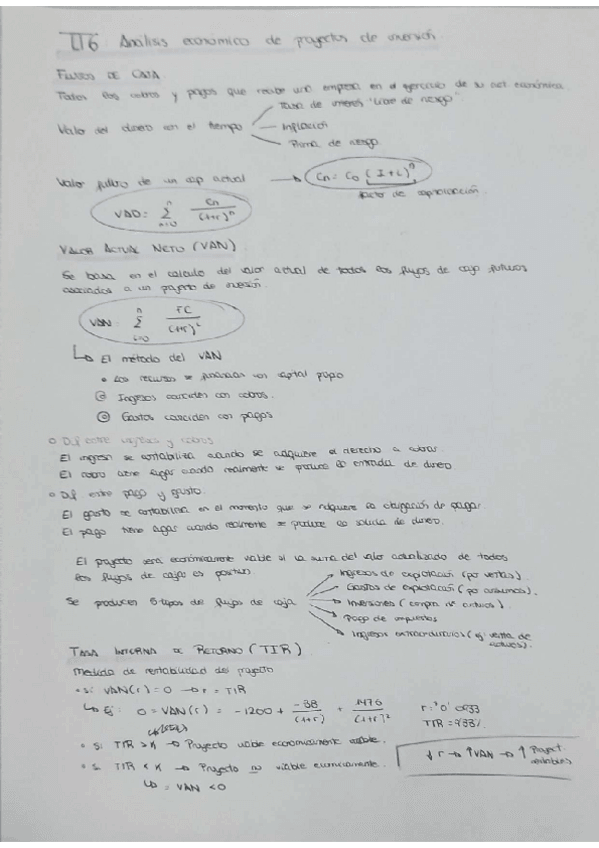 T6 Análisis económico de proyectos de inversión.
FLUJOS DE CAJA.
Todos los cobros y pagos que recibe una empresa en el ejercicio de su act económica.
Tasa de interés "libre de riesgo"
Valor del dinero con el tiempo
Inflación
Prima de riesgo.
Valor futuro de un cap actual → Cn = Co (1+i)^n
factor de capitalización.
VAD = Σ n i=0 Cn/(1+r)^n
VALOR ACTUAL NETO (VAN).
Se basa en el calculo del valor actual de todos los flujos de caja futuros
asociados a un proyecto de inversión.
VAN: Σ n i=0 FC/(1+r)^i
↳ El método del VAN
• Los recursos se financian con capital propio
Ingresos coinciden con cobros.
Gastos coinciden con pagos
○ Dif entre y cobros
El ingreso se contabiliza cuando se adquiere el derecho a cobrar
El cobro tiene lugar cuando realmente se produce la entrada de dinero
○ Dif entre pago y gasto.
El gasto se contabiliza en el momento que se adquiere la obligación de pagar
El pago tiene lugar cuando realmente se produce la salida de dinero.
El proyecto será económicamente viable si la suma del valor actualizado de todos
los flujos de caja es positivo
Ingresos de explotación (por ventas).
Gastos de explotación (por consumos).
Se producen 5 tipos de flujos de caja
Inversiones (compra activos).
Pago de impuestos
Ingresos extraordinarios (ej venta de
activos).
TASA INTERNA DE RETORNO (TIR)
Medida de rentabilidad del proyecto
• Si VAN(r) = 0 → r = TIR
↳ Ej: 0 = VAN(r) = -1200 + -88/(1+r) + 1476/(1+r)^2
• Si TIR > K → Proyecto viable economicamente viable.
• Si TIR < K → Proyecto no viable economicamente.
↳ = VAN < 0
↓ r → ↑ VAN → ↑ Proyect.